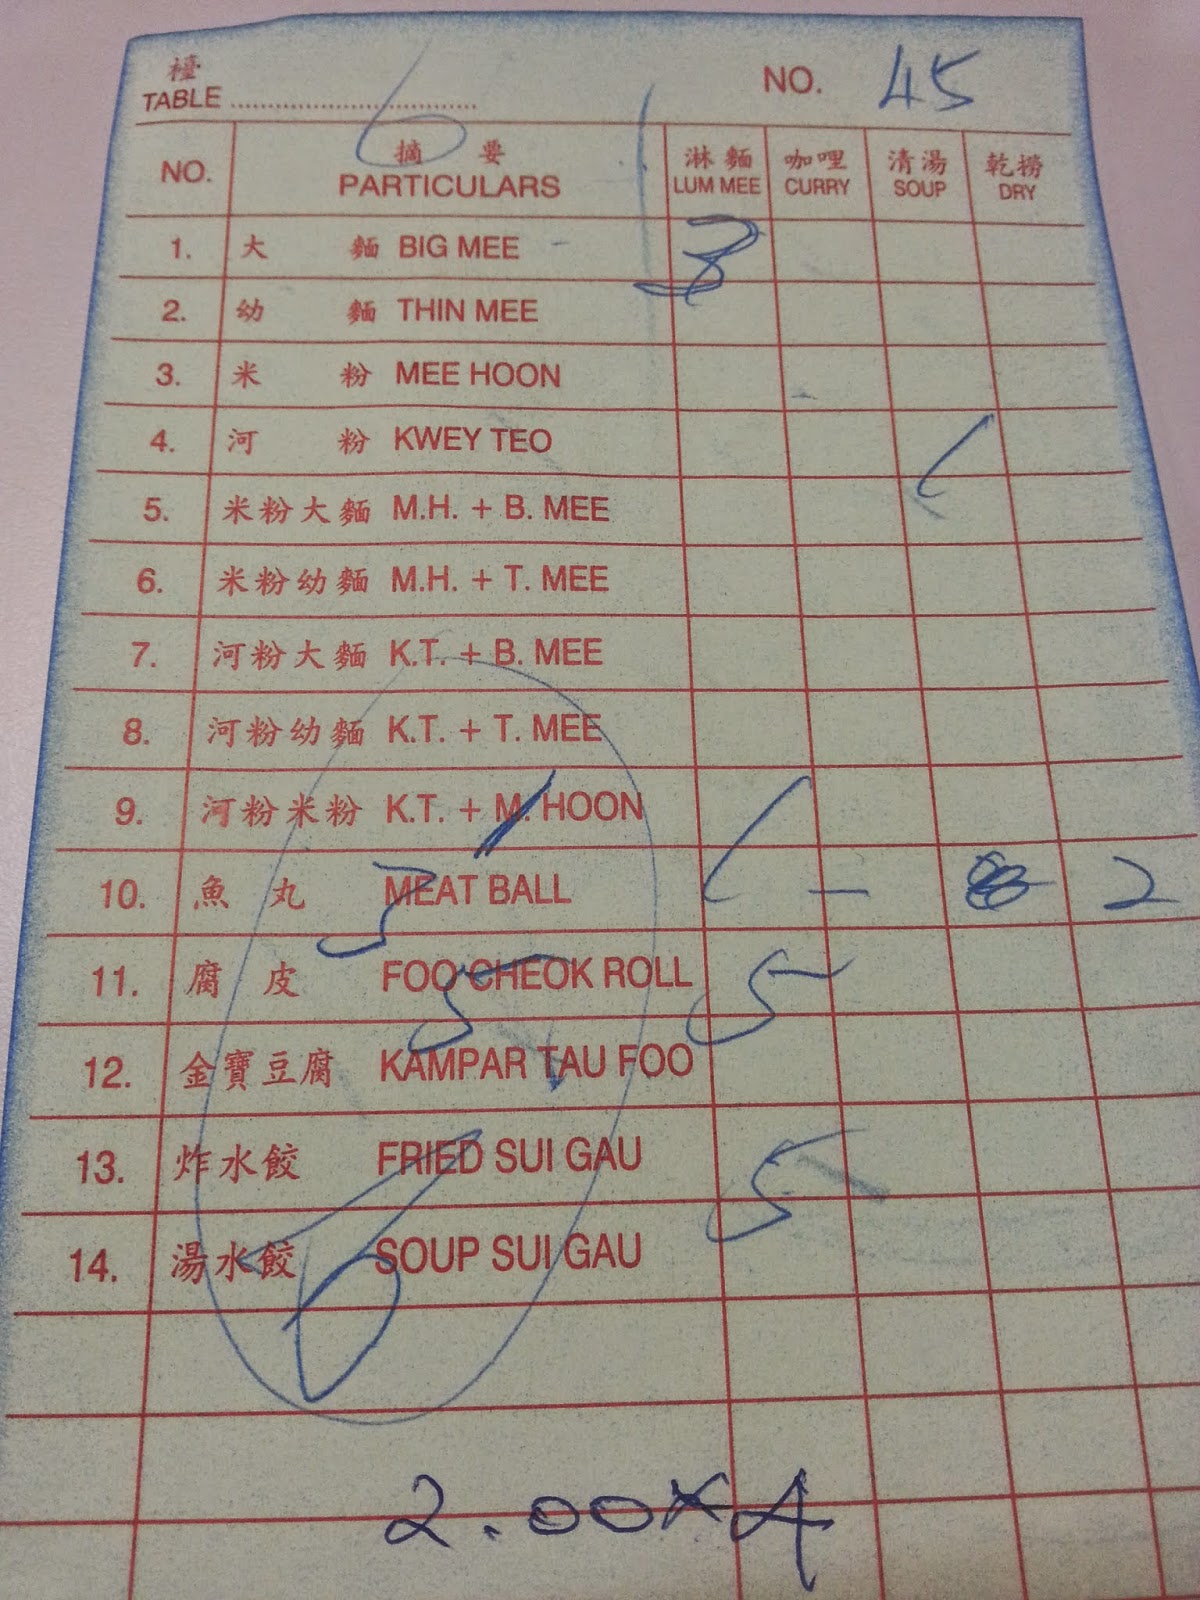 檯
TABLE ........................ 6 NO. 45
NO. 摘要 PARTICULARS 淋麵 LUM MEE 咖哩 CURRY 清湯 SOUP 乾撈 DRY
1. 大麵 BIG MEE
2. 幼麵 THIN MEE
3. 米粉 MEE HOON
4. 河粉 KWEY TEO
5. 米粉大麵 M.H. + B. MEE
6. 米粉幼麵 M.H. + T. MEE
7. 河粉大麵 K.T. + B. MEE
8. 河粉幼麵 K.T. + T. MEE
9. 河粉米粉 K.T. + M. HOON
10. 魚丸 MEAT BALL 2
11. 腐皮 FOO CHEOK ROLL 5
12. 金寶豆腐 KAMPAR TAU FOO
13. 炸水餃 FRIED SUI GAU 5
14. 湯水餃 SOUP SUI GAU
2.00×4